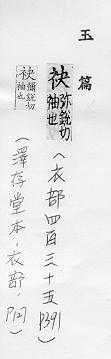 玉篇
袂 弥銳切
袖也
(衣部四百三十五 P391)
袂 彌銳切
袖也
(澤存堂本·衣部·P127)